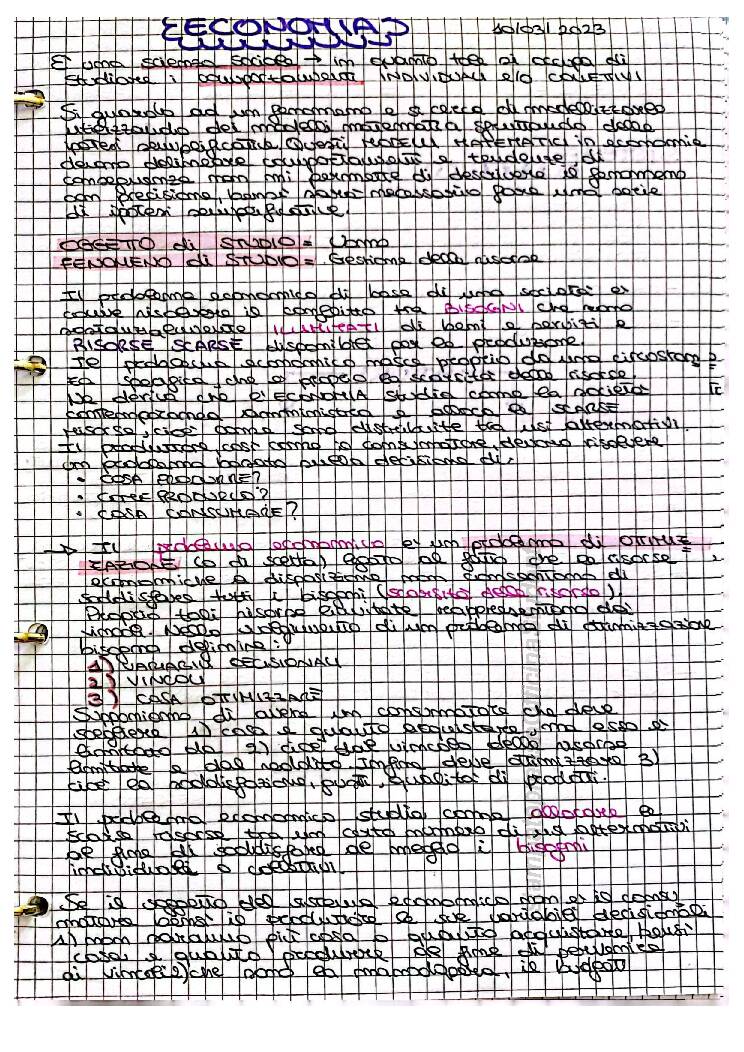 ECONOMIA
10/03/2023
È una scienza sociale → in quanto tale si occupa di
studiare i comportamenti INDIVIDUALI e/o COLLETTIVI
Si guarda ad un fenomeno e si cerca di modellizzarlo
utilizzando dei modelli matematici sfruttando delle
ipotesi semplificative. Questi MODELLI MATEMATICI in economia
devono delineare comportamenti e tendenze, di
conseguenza non mi permette di descrivere il fenomeno
con precisione, bensì sarà necessario fare una serie
di ipotesi semplificative.
OGGETTO di STUDIO = Uomo
FENOMENO di STUDIO = Gestione delle risorse
Il problema economico di base di una società è
come risolvere il conflitto tra BISOGNI che sono
sostanzialmente ILLIMITATI di beni e servizi e
RISORSE SCARSE disponibili per la produzione.
Il problema economico nasce proprio da una circostan
za specifica, che è proprio la scarsità delle risorse.
Ne deriva che l'ECONOMIA studia come la società
contemporanea amministra e alloca le SCARSE
risorse, cioè come sono distribuite tra usi alternativi.
Il produttore, così come il consumatore, devono risolvere
un problema basato sulla decisione di:
• COSA PRODURRE?
• COME PRODURLO?
• COSA CONSUMARE?
→ Il problema economico è un problema di OTTIMIZ
ZAZIONE (o di scelta) legato al fatto che le risorse
economiche a disposizione non consentono di
soddisfare tutti i bisogni (scarsità delle risorse).
Proprio tali risorse limitate rappresentano dei
vincoli. Nello svolgimento di un problema di ottimizzazione
bisogna definire:
1) VARIABILI DECISIONALI
2) VINCOLI
3) COSA OTTIMIZZARE
Supponiamo di avere un consumatore che deve
scegliere 1) cosa e quanto acquistare, ma esso è
limitato da 2) cioè dal vincolo delle risorse
limitate e dal reddito. Infine deve ottimizzare 3)
cioè la soddisfazione, gusti, qualità di prodotti.
Il problema economico studia come allocare le
scarse risorse tra un certo numero di usi alternativi
al fine di soddisfare al meglio i bisogni
individuali o collettivi.
Se il soggetto del sistema economico non è il consu
matore bensì il produttore le sue variabili decisionali
1) non saranno più cosa o quanto acquistare, bensì
cosa e quanto produrre al fine di pervenire
ai vincoli 2) che sono la manodopera, il budget